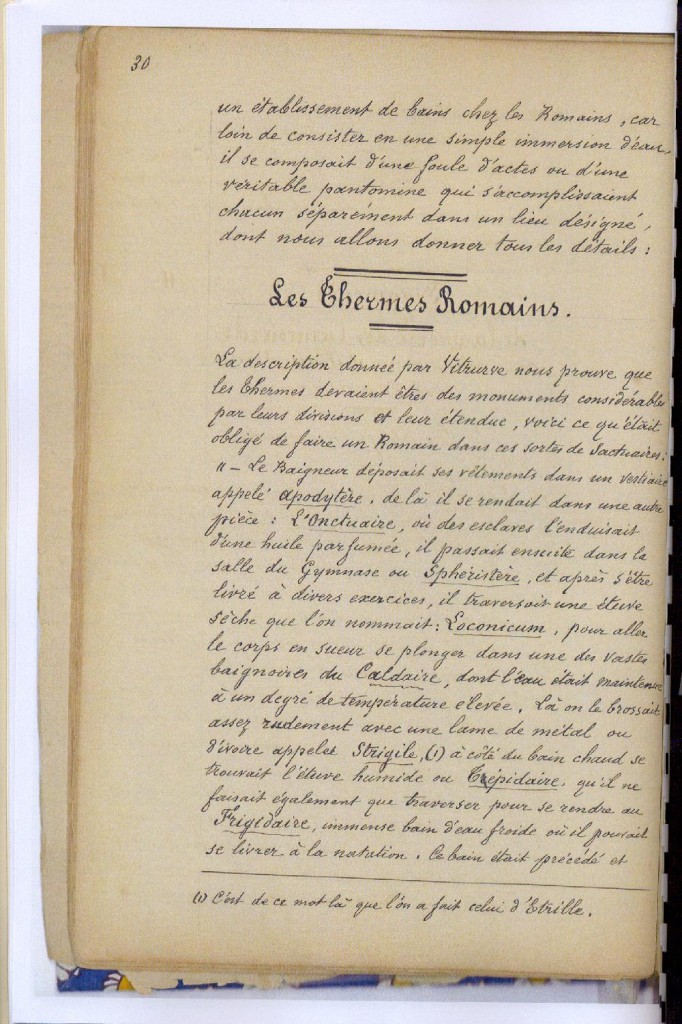 30
un établissement de bains chez les Romains, car
loin de consister en une simple immersion d'eau,
il se composait d'une foule d'actes ou d'une
véritable pantomine qui s'accomplissaient
chacun séparément dans un lieu désigné,
dont nous allons donner tous les détails :
Les Thermes Romains.
La description donnée par Vitrurve nous prouve que
les Thermes devaient êtres des monuments considérables
par leurs divisions et leur étendue, voici ce qu'était
obligé de faire un Romain dans ces sortes de Sactuaires :
" – Le Baigneur déposait ses vêtements dans un vestiaire
appelé apodytère. de là il se rendait dans une autre
pièce : L'Onctuaire, où des esclaves l'enduisait
d'une huile parfumée, il passait ensuite dans la
salle du Gymnase ou Sphéristère, et après s'être
livré à divers exercices, il traversait une étuve
sèche que l'on nommait : Loconicum, pour aller
le corps en sueur se plonger dans une des vastes
baignoires du Caldaire, dont l'eau était maintenue
à un degré de température élevée. Là on le brossait
assez rudement avec une lame de métal ou
d'ivoire appelée Strigile, (1) à côté du bain chaud se
trouvait l'étuve humide ou Trépidaire. qu'il ne
faisait également que traverser pour se rendre au
Frigidaire, immense bain d'eau froide où il pouvait
se livrer à la natation. Ce bain était précédé et
(1) C'est de ce mot là que l'on a fait celui d'Etrille.